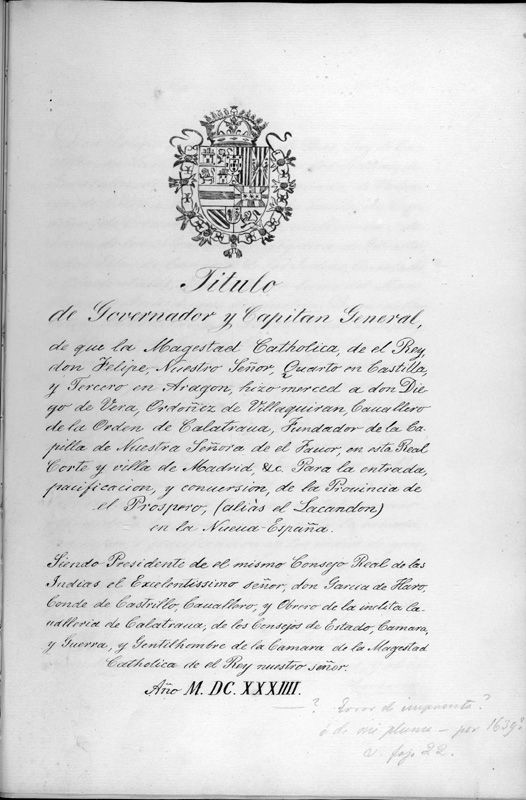 Titulo
de Governador y Capitan General,
de que la Magestad Catholica, de el Rey,
don Felipe, Nuestro Señor, Quarto en Castilla,
y Tercero en Aragon, hizo merced a don Die
go de Vera, Ordoñez de Villaquiran, Cauallero
de la Orden de Calatraua, Fundador de la Ca
pilla de Nuestra Señora de el Fauor, en esta Real
Corte y villa de Madrid &c. Para la entrada,
pacificacion, y conuersion, de la Prouincia de
el Prospero, (aliàs el Lacandon)
en la Nueua-España.
Siendo Presidente de el mismo Consejo Real de las
Indias el Exelentissimo señor, don Garcia de Haro,
Conde de Castrillo, Cauallero, y Obrero de la inclita Ca-
ualleria de Calatraua, de los Consejos de Estado, Camara,
y Guerra, y Gentilhombre de la Camara de la Magestad
Catholica de el Rey nuestro señor.
Año M. DC. XXXIIII.
—? Error de imprenta?
ó de mi pluma — por 1639?
v. foja 22.